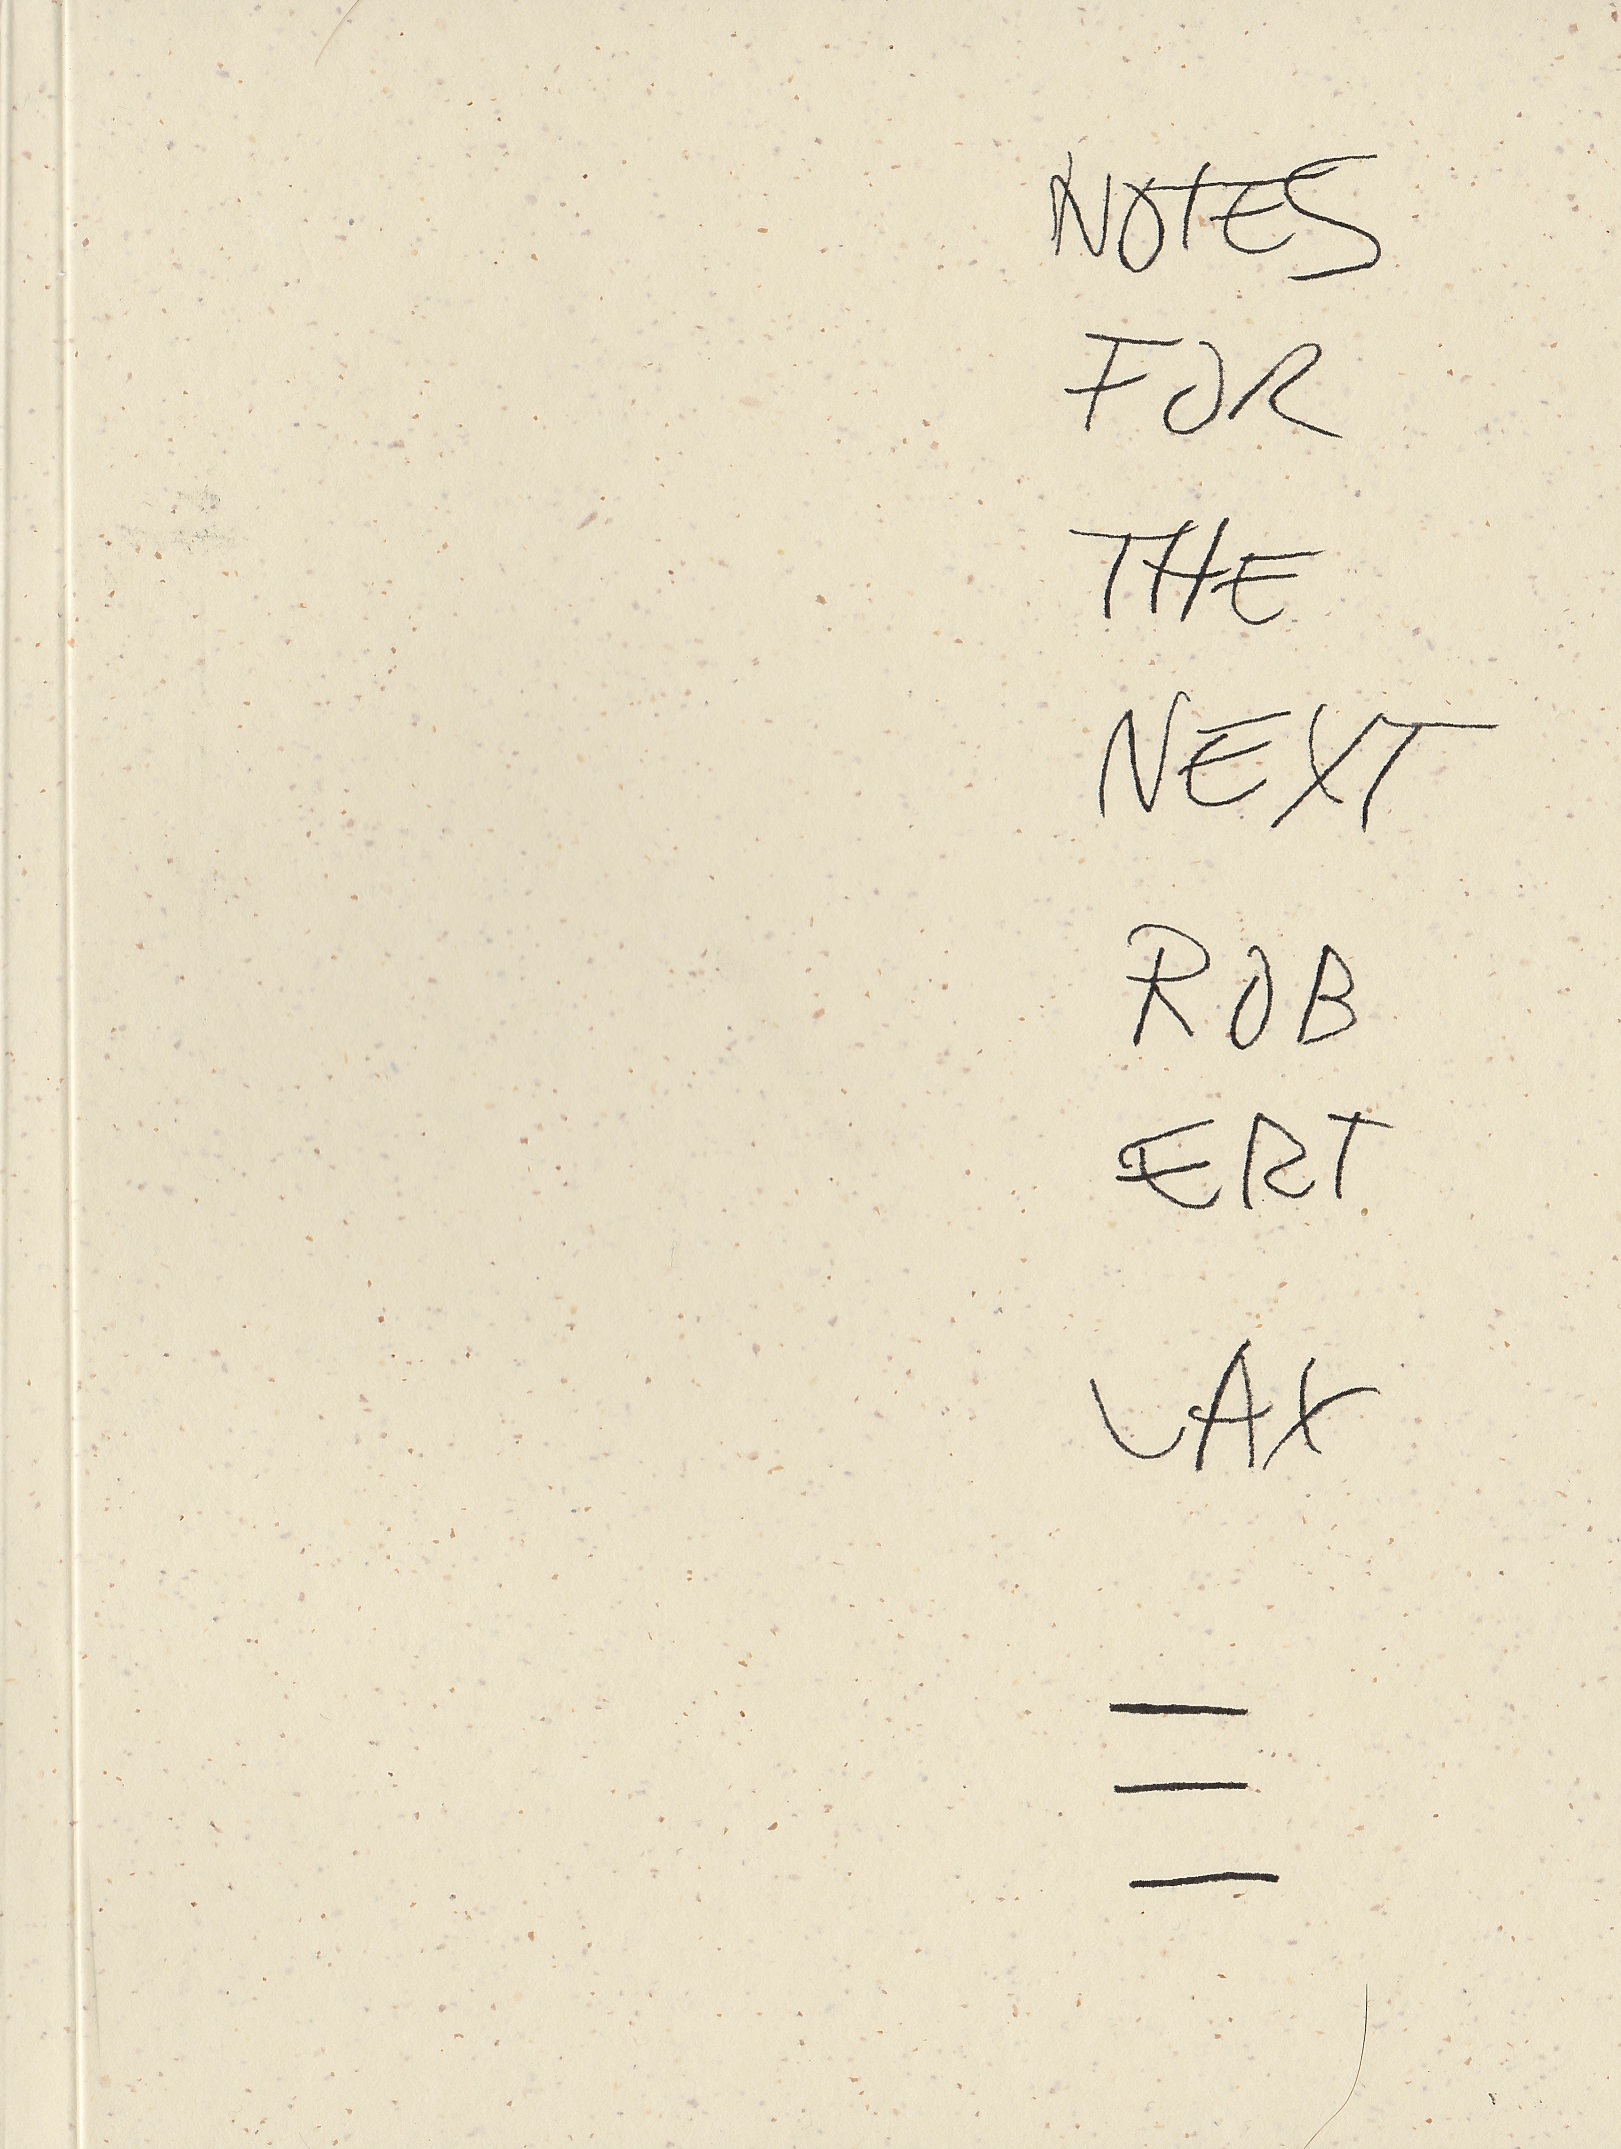 NOTES
FOR
THE
NEXT
ROB
ERT
LAX